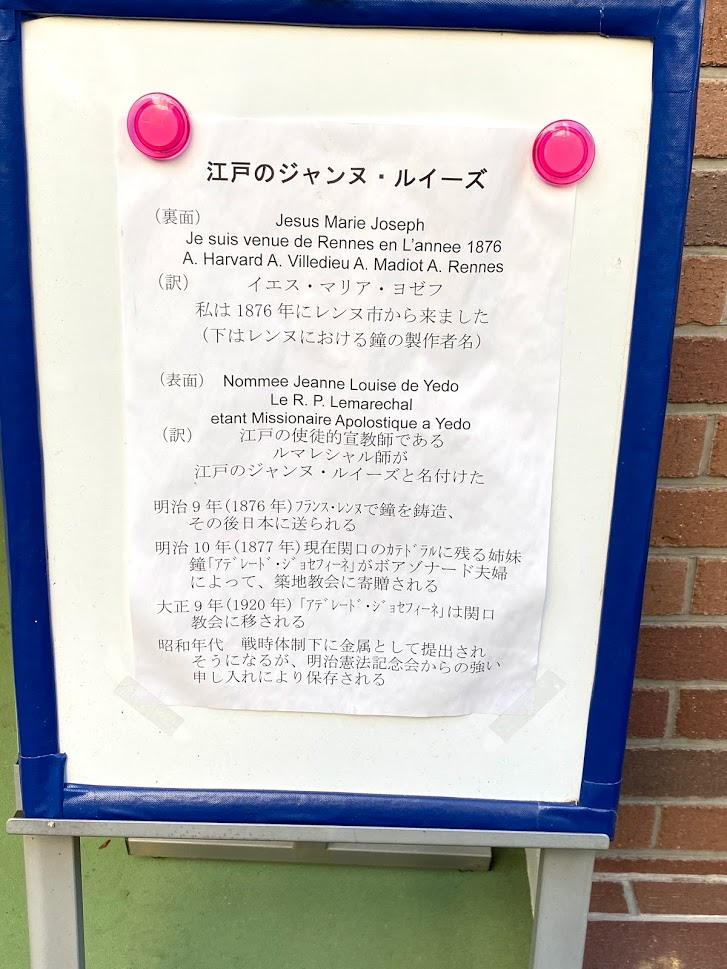 江戸のジャンヌ・ルイーズ
（裏面） Jesus Marie Joseph
Je suis venue de Rennes en L'annee 1876
A. Harvard A. Villedieu A. Madiot A. Rennes
（訳） イエス・マリア・ヨゼフ
私は1876年にレンヌ市から来ました
（下はレンヌにおける鐘の製作者名）
（表面） Nommee Jeanne Louise de Yedo
Le R. P. Lemarechal
etant Missionaire Apolostique a Yedo
（訳） 江戸の使徒的宣教師である
ルマレシャル師が
江戸のジャンヌ・ルイーズと名付けた
明治9年(1876年)ﾌﾗﾝｽ・ﾚﾝﾇで鐘を鋳造、
その後日本に送られる
明治10年(1877年)現在関口のｶﾃﾄﾞﾗﾙに残る姉妹
鐘「ｱﾃﾞﾚｰﾄﾞ・ｼﾞｮｾﾌｨｰﾈ」がボアゾナード夫婦
によって、築地教会に寄贈される
大正9年(1920年)「ｱﾃﾞﾚｰﾄﾞ・ｼﾞｮｾﾌｨｰﾈ」は関口
教会に移される
昭和年代　戦時体制下に金属として提出され
そうになるが、明治憲法記念会からの強い
申し入れにより保存される